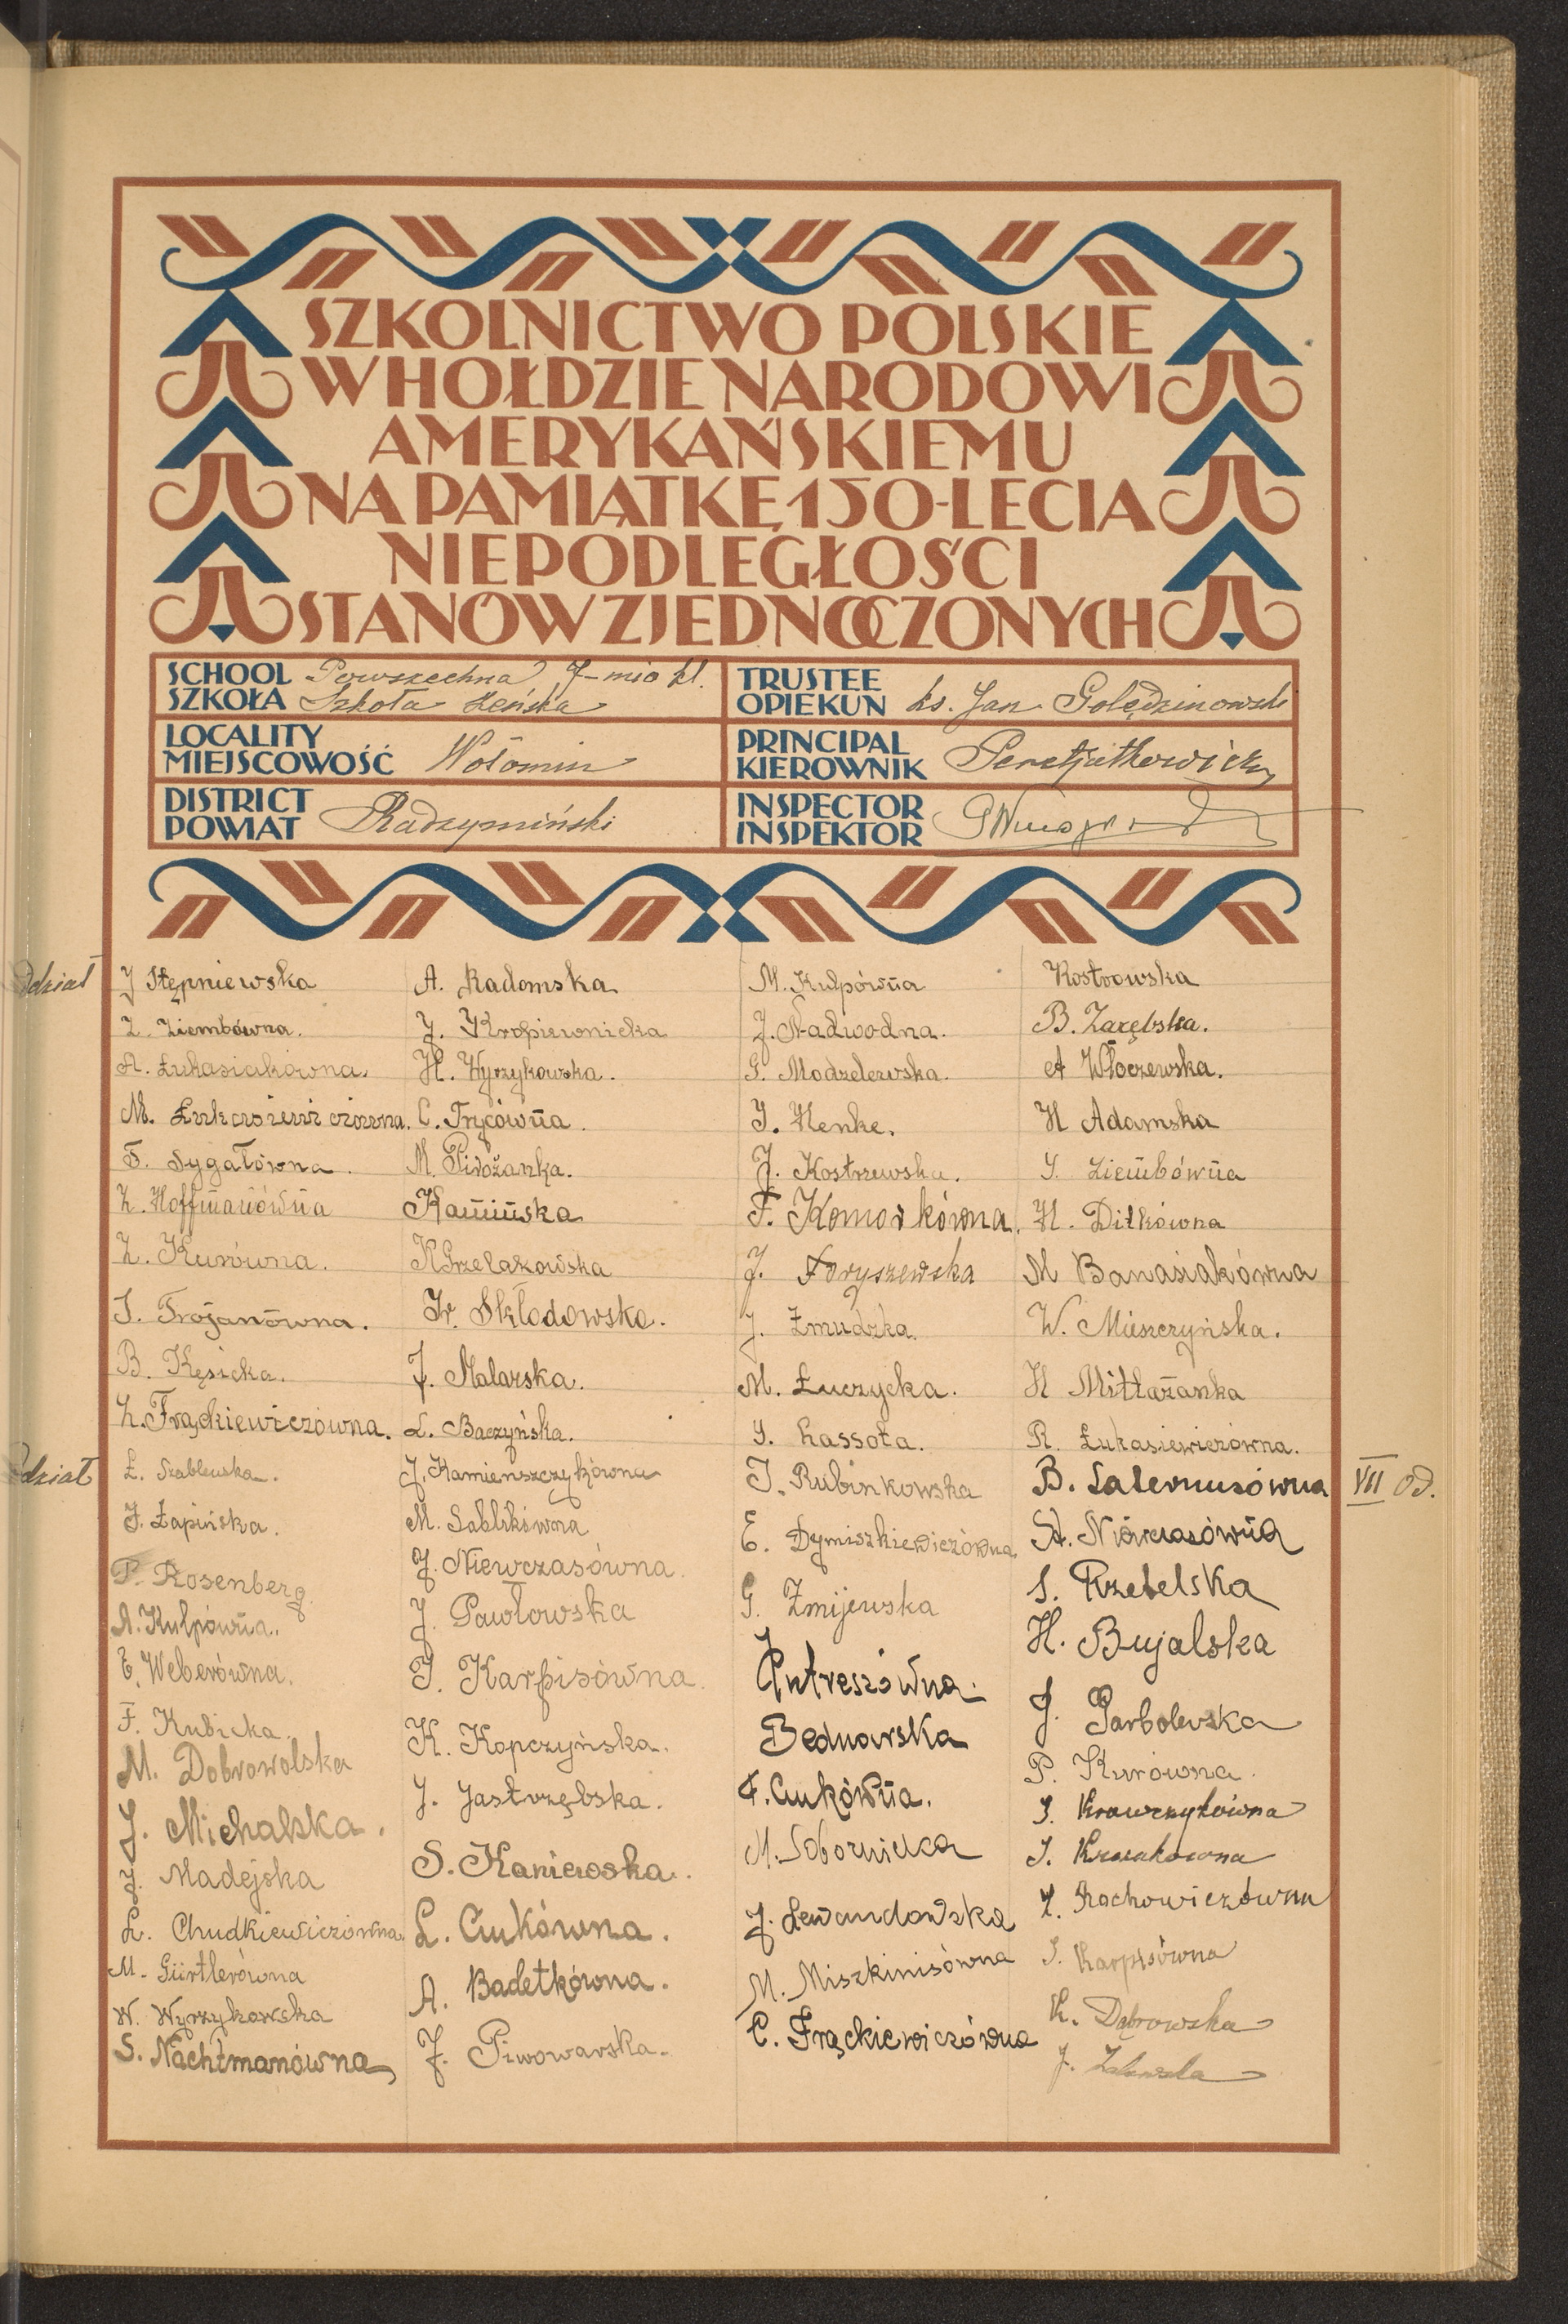 SZKOLNICTWO POLSKIE
W HOŁDZIE NARODOWI
AMERYKAŃSKIEMU
NA PAMIĄTKĘ 150-LECIA
NIEPODLEGŁOŚCI
STANÓW ZJEDNOCZONYCH
SCHOOL
SZKOŁA
Powszechna 7-mio kl.
Szkoła Żeńska
TRUSTEE
OPIEKUN
ks. Jan Golędzinowski
LOCALITY
MIEJSCOWOŚĆ
Wołomin
PRINCIPAL
KIEROWNIK
Peretjatkowicz
DISTRICT
POWIAT
Radzymiński
INSPECTOR
INSPEKTOR
ddział
J Stępniewska
Z. Ziembówna.
A. Łukasiakówna.
M. Łukasiewiczówna.
F. Sygałówna.
Z. Hoffmanówna
Z. Kurówna.
I. Trojanówna.
B. Kęsicka.
Z. Frąckiewiczówna.
ddział
Ł. Szablewska.
J. Łapińska.
P. Rosenberg.
A. Kulpówna.
E. Weberówna.
F. Kubicka.
M. Dobrowolska
J. Michalska.
J. Madejska
L. Chudkiewiczówna.
M. Gürtlerówna
W. Wyrzykowska
S. Nachtmanówna
A. Radomska
J. Kropiewnicka
H. Wyrzykowska.
C. Trycówna.
M. Piróżanka.
Kamińska
K Grzelakowska
Ir. Skłodowska.
J. Malarska.
L. Baczyńska.
J. Kamieńszczykówna
M. Sablikówna
J. Niewczasówna.
J. Pawłowska
J. Karpisówna.
K. Kopczyńska.
J. Jastrzębska.
S. Kaniewska.
L. Ćwikówna.
A. Badetkówna.
J. Piwowarska.
M. Kulpówna
J. Nadwodna.
G. Modzelewska.
J. Henke.
J. Kostrzewska.
F. Komorkówna.
J. Foryszewska
J. Żmudzka.
M. Łuczycka.
J. Lassota.
J. Rubinkowska
E. Dymiszkiewiczówna
G. Żmijewska
J Putreszówna.
Bednarska
F. Cukówna.
M. Sobornicka
J. Lewandowska
M. Miszkinisówna
C. Frąckiewiczówna
Kostrowska
B. Zarębska.
A Włoczewska.
H Adamska
J. Ziembówna
H. Ditkówna
M Banasiakówna
W. Mieszczyńska.
H Mitlażanka
R. Łukasiewiczówna.
B. Laternusówna
VII od.
St. Niewczasówna
S. Rzetelska
H. Bujalska
J. Parbolewska
P. Kurówna.
J. Krawczykówna
J. Krasakowna
Z. Rochowiczówna
J. Karpisówna
K. Dąbrowska
J. Zalewska